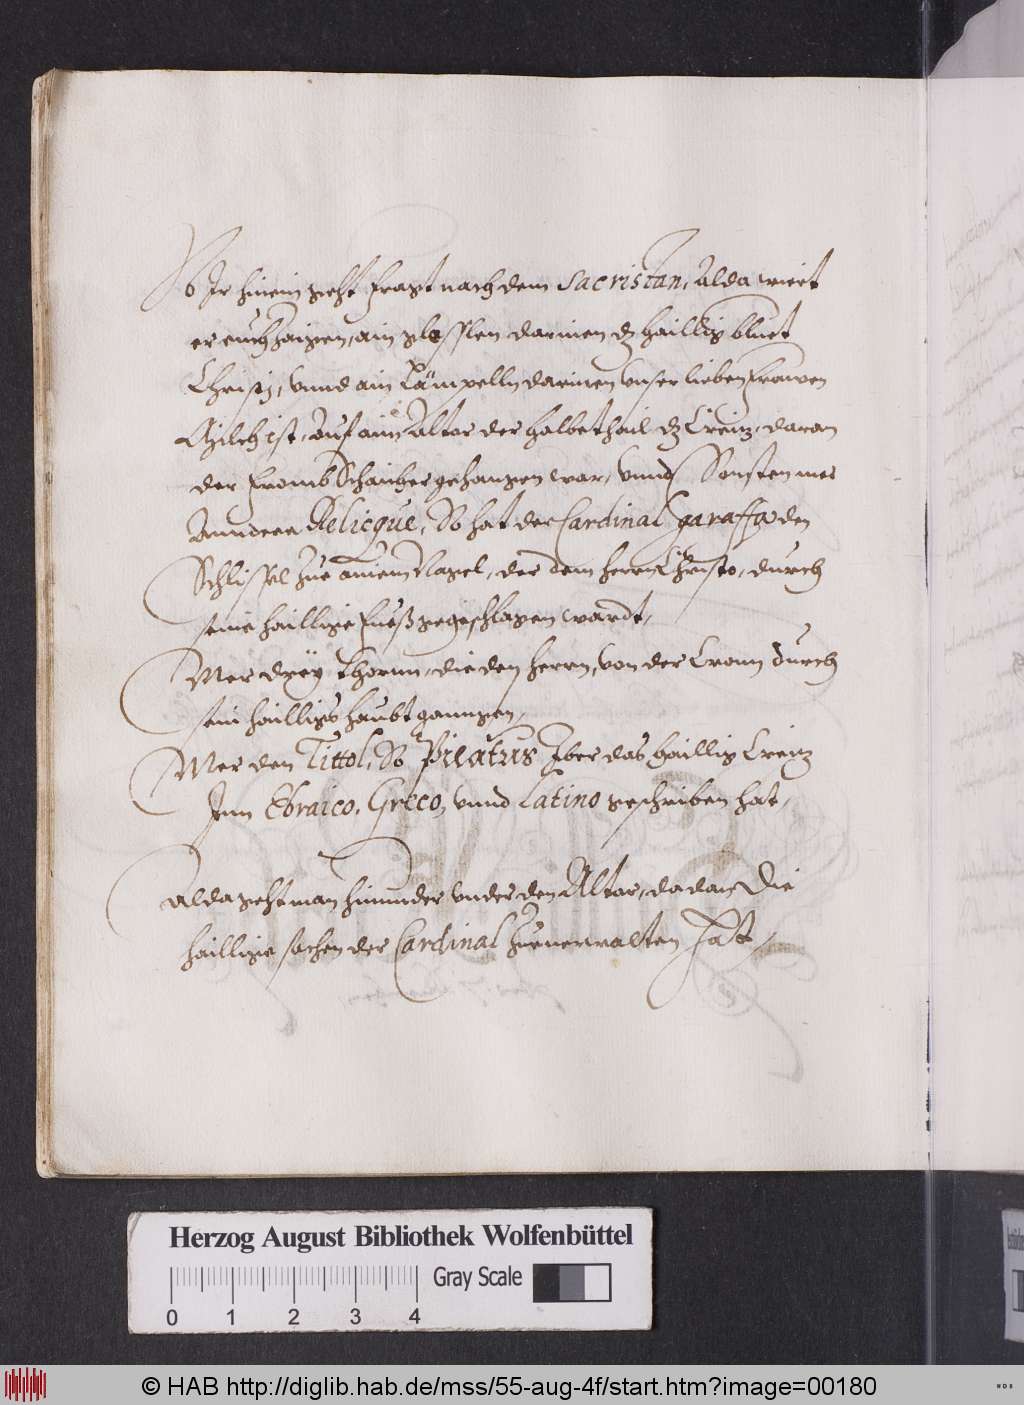 So Ir hinein geht fragt nach dem Sacristan, Alda wiert
er euch zaigen, ain gläsßlen darinen dz haillig bluet
Christj, Vnnd ain Lämpelln darinen Vnser lieben Frawen
Milch ist, Auf ainn Altar der halbe thail dz Creiz, daran
der fromb Schaicher gehangen war, Vnnd Sonsten mer
Anndere Relicque, So hat der Cardinal garaffa den
Schlissel zue ainem Nagel, der dem herrn Christo, durch
seine haillige fueß gegschlagen wardt,
Mer drey thornn, die den herrn, von der Cronn durch
sein hailligs haubt ganngen,
Mer den Tittol, So Pilatus Jber das haillig Creiz
Jnn Ebraico, Greco, vnnd Latino geschriben hat,
Alda geht man hinunder vnder den Altar, da dan die
haillige sachen der Cardinal Zuuerwalten hat,
Herzog August Bibliothek Wolfenbüttel
Gray Scale
0 1 2 3 4
© HAB http://diglib.hab.de/mss/55-aug-4f/start.htm?image=00180